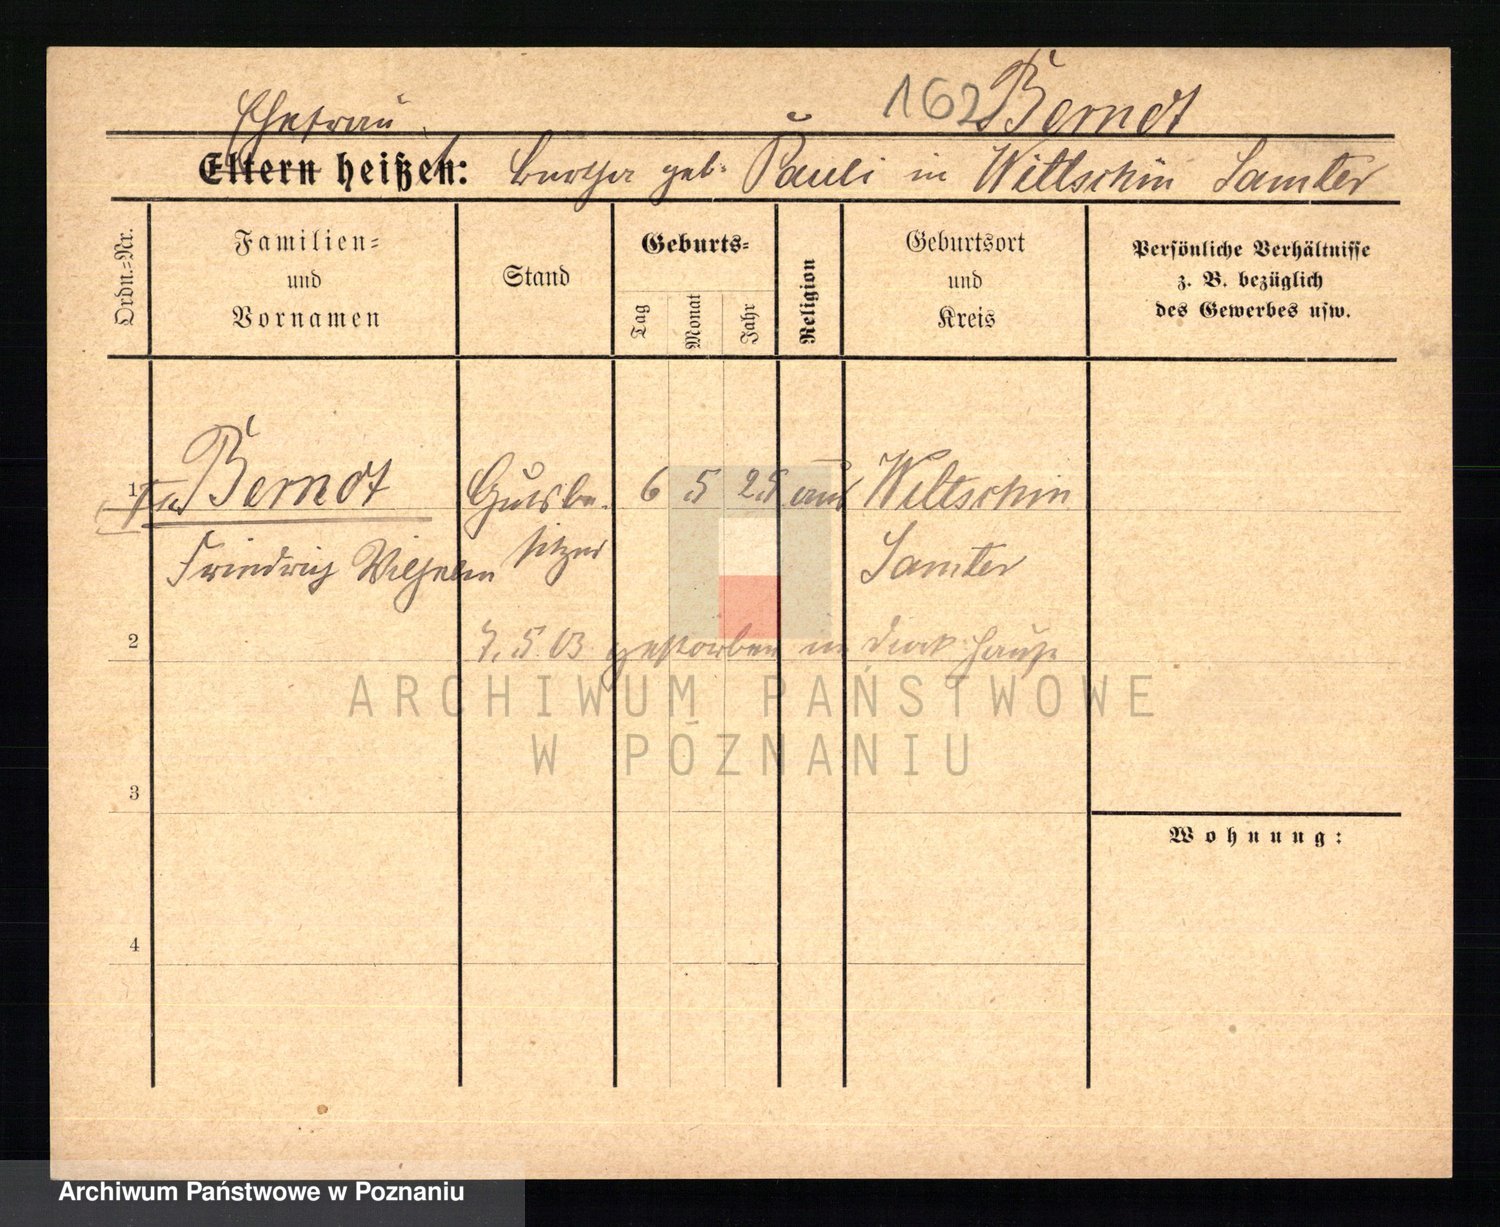 162 Berndt
Ehefrau
Eltern heißen: Bertha geb. Pauli in Wiltschin Samter
Ordn.=Nr.
Familien=
und
Vornamen
Stand
Geburts=
Tag
Monat
Jahr
Religion
Geburtsort
und
Kreis
Persönliche Verhältnisse
z. B. bezüglich
des Gewerbes usw.
1 Berndt Gutsbe- 6 5 25 Wiltschin
Friedrich Wilhelm sitzer Samter
2 7.5.03 gestorben im
ARCHIWUM PAŃSTWOWE
W POZNANIU
3
Wohnung:
4
Archiwum Państwowe w Poznaniu